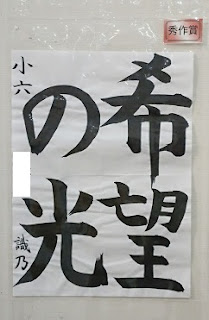 秀作賞
希望
の光
小六
識乃